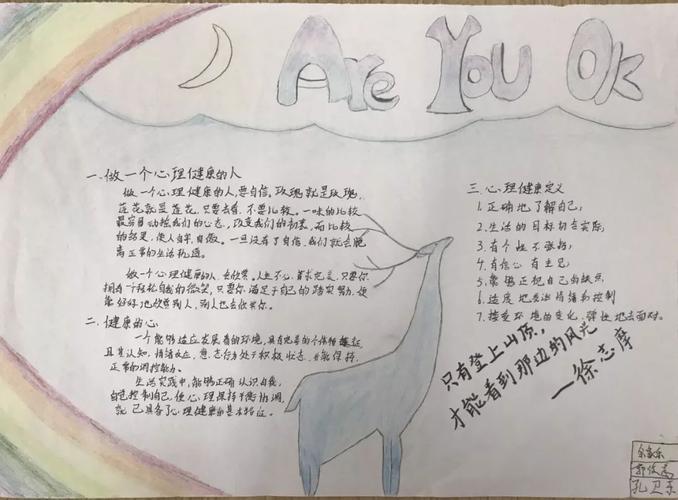 Are You Ok
一、做一个心理健康的人
做一个心理健康的人,要自信。玫瑰就是玫瑰,
莲花就是莲花,只要去看,不要比较。一味的比较
最容易动摇我们的心态,改变我们的初衷,而比较
的结果,使人自卑、自傲。一旦没有了自信,我们就会脱
离正常的生活轨道。
做一个心理健康的人,
拥有
自己的踏实努力,
好好地欣赏别人,别人也会欣赏你。
二、健康的心
一个能够适应发展着的环境,具有完善的个性
且其认知,情绪反应,意志行为处于积极状态,并能保持
正常的调控能力。
生活实践中,能够正确认识自我,
自觉控制自己,使心理保持平衡协调,
就已具备了心理健康的基本特征。
三、心理健康定义
1.正确地了解自己;
2.生活的目标切合实际;
3.有个性不张扬;
4.有信心有主见;
5.能够正视自己的缺点
6.适度地表达情绪和控制
7.接受环境的变化,弹性地去面对。
只有登上山顶,
才能看到那边的风光
—徐志摩
孔卫东